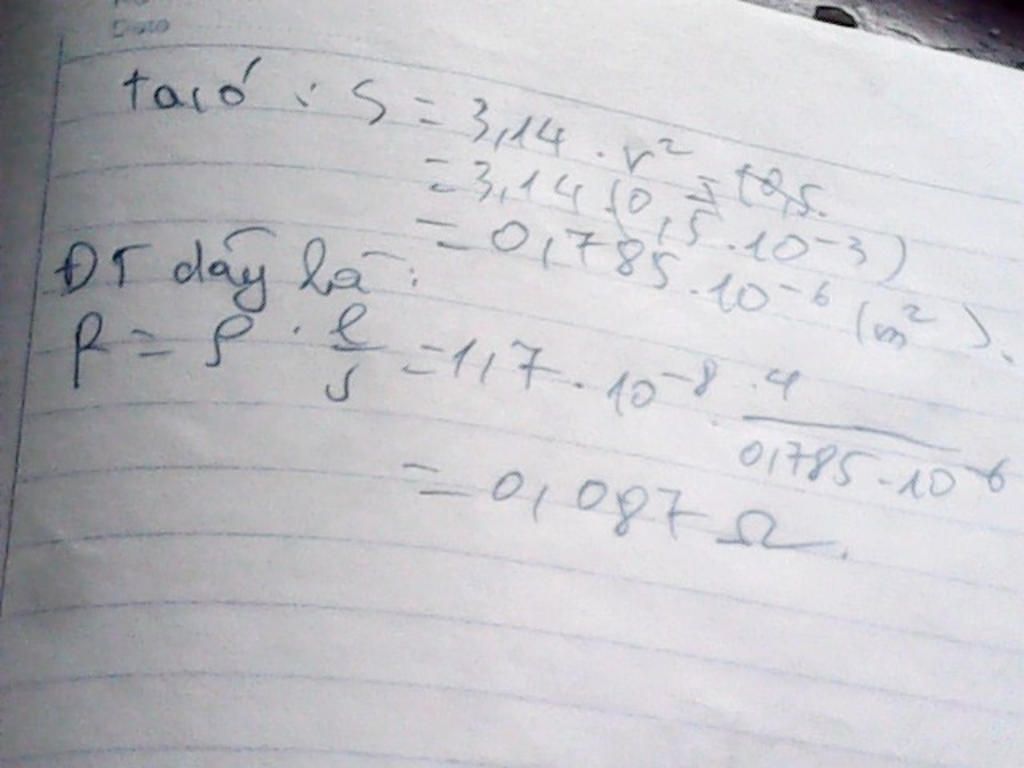 Date
ta có : S = 3,14 . r²
= 3,14 (0,5.10⁻³)
= 0,785.10⁻⁶ (m²).
ĐT dây là :
R = ρ . l/S = 1,7 . 10⁻⁸ . 4/0,785.10⁻⁶
= 0,087 Ω.